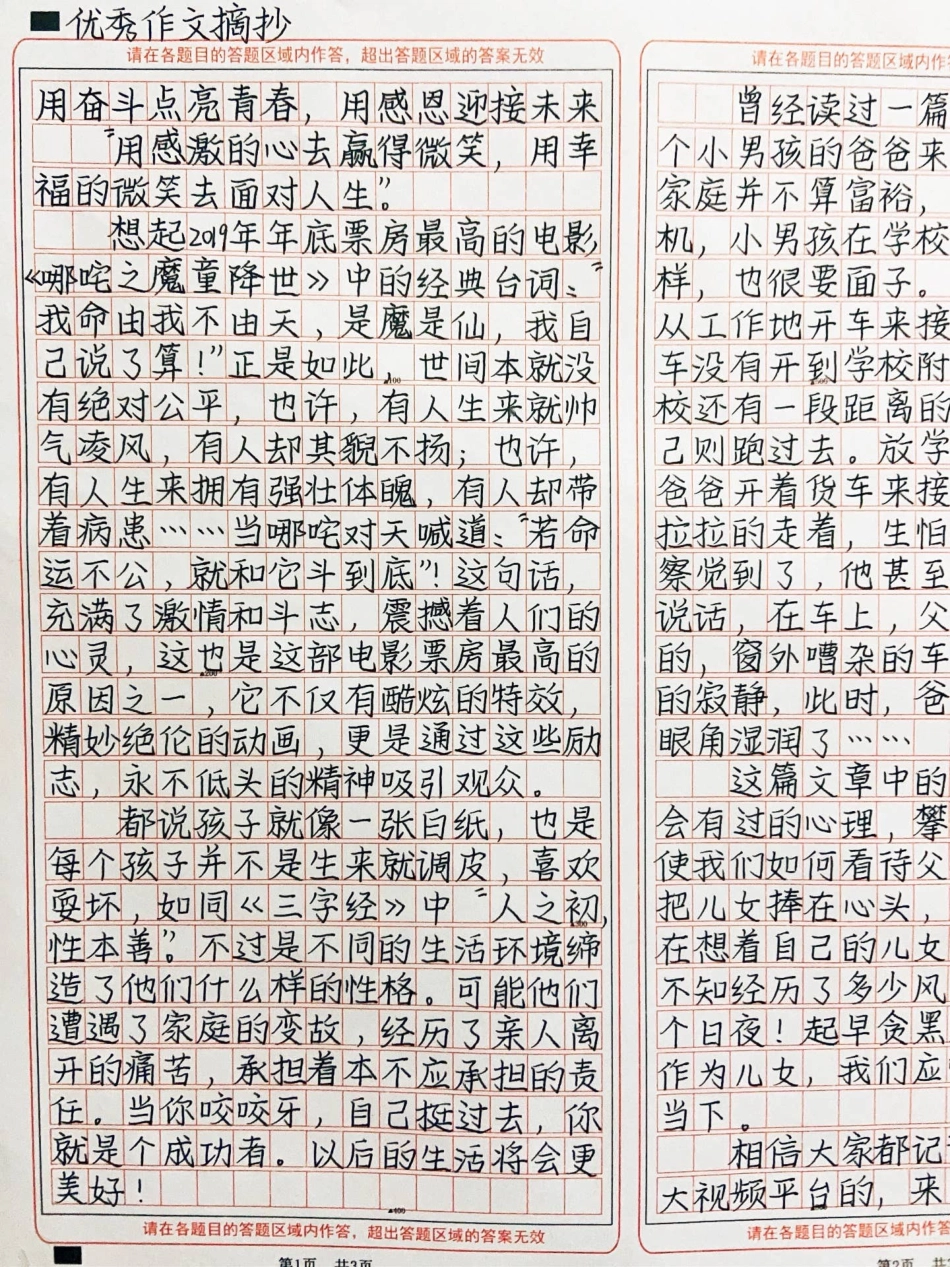 优秀作文摘抄
请在各题目的答题区域内作答，超出答题区域的答案无效
用奋斗点亮青春，用感恩迎接未来
“用感激的心去赢得微笑，用幸
福的微笑去面对人生”。
想起2019年年底票房最高的电影
《哪咤之魔童降世》中的经典台词：“
我命由我不由天，是魔是仙，我自
己说了算！”正是如此，世间本就没
▲100
有绝对公平，也许，有人生来就帅
气凌风，有人却其貌不扬；也许，
有人生来拥有强壮体魄，有人却带
着病患……当哪咤对天喊道：“若命
运不公，就和它斗到底”！这句话，
充满了激情和斗志，震撼着人们的
心灵，这也是这部电影票房最高的
▲200
原因之一，它不仅有酷炫的特效，
精妙绝伦的动画，更是通过这些励
志，永不低头的精神吸引观众。
都说孩子就像一张白纸，也是
每个孩子并不是生来就调皮，喜欢
耍坏，如同《三字经》中“人之初，
▲300
性本善”。不过是不同的生活环境缔
造了他们什么样的性格。可能他们
遭遇了家庭的变故，经历了亲人离
开的痛苦，承担着本不应承担的责
任。当你咬咬牙，自己挺过去，你
就是个成功者。以后的生活将会更
美好！
▲400
请在各题目的答题区域内作答，超出答题区域的答案无效
第1页 共3页
请在各题目的答题区域内作
曾经读过一篇
个小男孩的爸爸来
家庭并不算富裕，
机，小男孩在学校
样，也很要面子。
从工作地开车来接
车没有开到学校附
▲500
校还有一段距离的
己则跑过去。放学
爸爸开着货车来接
拉拉的走着，生怕
察觉到了，他甚至
说话，在车上，父
的，窗外嘈杂的车
的寂静，此时，爸
眼角湿润了……
这篇文章中的
会有过的心理，攀
使我们如何看待父
把儿女捧在心头，
在想着自己的儿女
不知经历了多少风
个日夜！起早贪黑
作为儿女，我们应
当下。
相信大家都记
大视频平台的，来
请在各题目的答题区域内作答
第2页